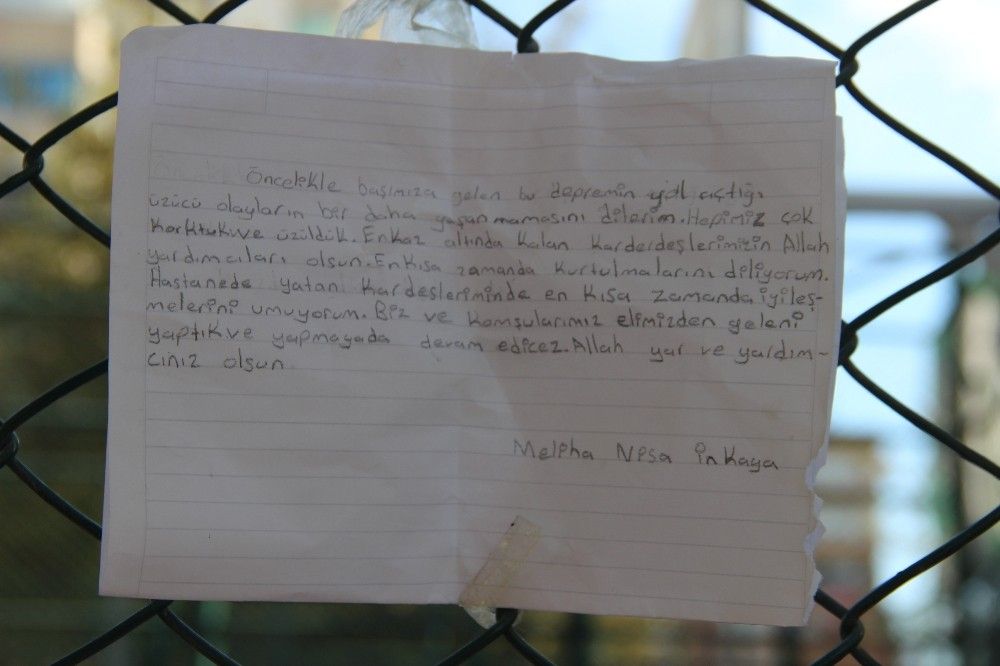 Öncelikle başımıza gelen bu depremin yol açtığı
üzücü olayların bir daha yaşanmamasını dilerim. Hepimiz çok
korktuk ve üzüldük. Enkaz altında kalan karderdeşlerimizin Allah
yardımcıları olsun. En kısa zamanda kurtulmalarını diliyorum.
Hastanede yatan kardeşleriminde en kısa zamanda iyileş-
melerini umuyorum. Biz ve komşularımız elimizden geleni
yaptık ve yapmayada devam edicez. Allah yar ve yardım-
cınız olsun
Nisa inkaya